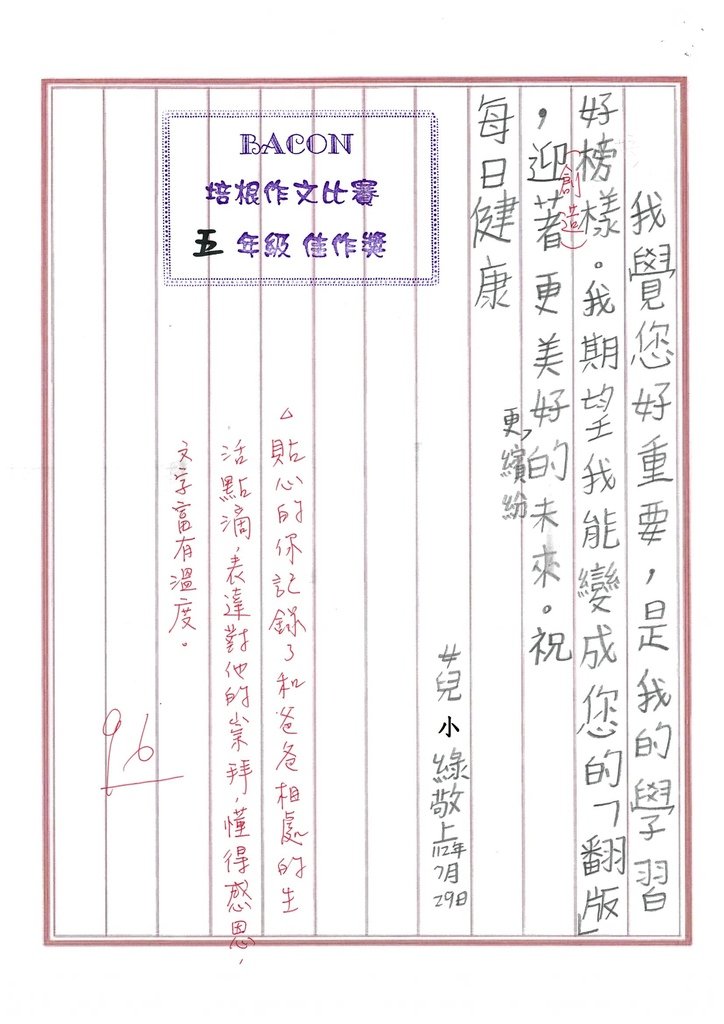 我覺您好重要，是我的學習
好榜樣。我期望我能變成您的「翻版」
，迎著更美好的未來。祝
創造
更，繽紛
每日健康
女兒小綠敬上
112年
7月
29日
BACON
培根作文比賽
五年級 佳作獎
△貼心的你記錄了和爸爸相處的生
活點滴，表達對他的崇拜，懂得感恩，
文字富有溫度。
96